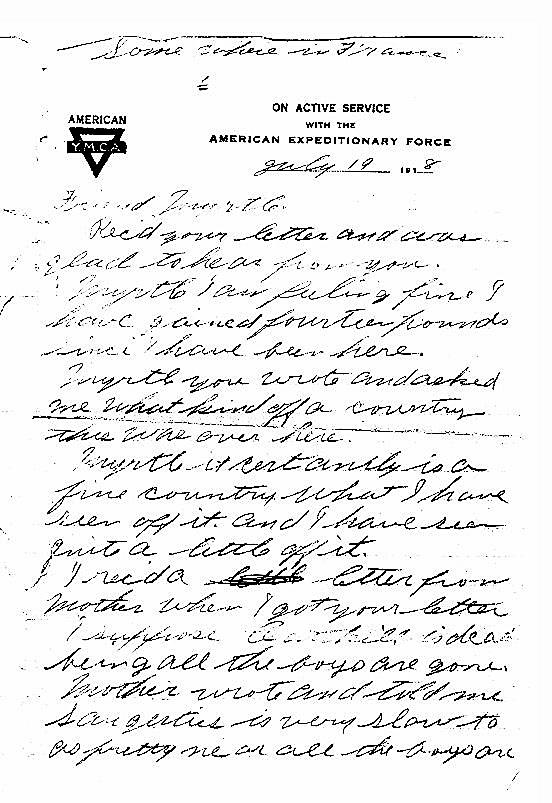 Some where in France
ON ACTIVE SERVICE
WITH THE
AMERICAN EXPEDITIONARY FORCE
AMERICAN
Y.M.C.A.
July 19 1918
Friend Myrtle.
Rec'd your letter and was
glad to hear from you.
Myrtle I am feeling fine I
have gained fourteen pounds
since I have been here.
Myrtle you wrote and asked
me what kind off a country
this was over here.
Myrtle it certantly is a
fine country what I have
seen off it. and I have seen
quite a little off it.
I recid a letter from
Mother when I got your letter
I suppose is dead
being all the boys are gone.
Mother wrote and told me
Saugerties is very slow to
as pretty near all the boys are